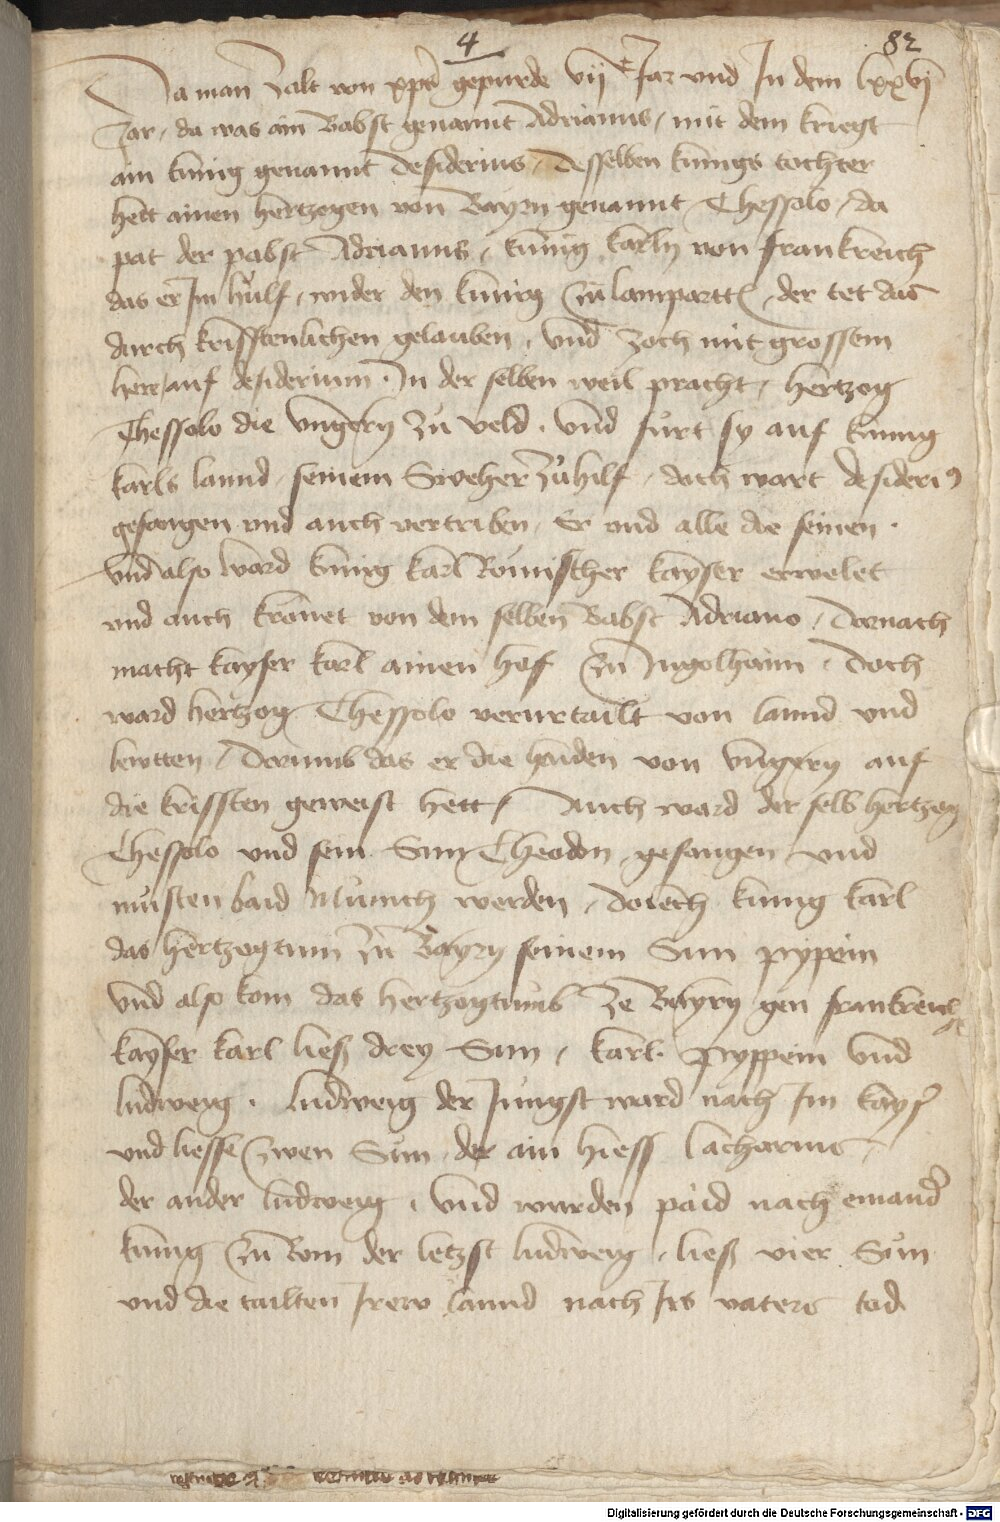 4 82
Da man Zalt von xpi gepurde vijc Jar vnd In dem lxxvj
Jar / da was ain Babst genannt Adrianus / mit dem kriegt
ain kunig genannt Desiderius / Desselben kunigs tochter
hett ainen hertzogen von Bayrn genannt Thessolo / da
pat der pabst Adrianus / kunig karln von frankreich
das er Im hulf / wider den kunig zu lampartt / der tet das
durch kristenlichen gelauben / vnd zoch mit grossem
here / auf desiderium . In der selben weil pracht / hertzog
Thessolo die vngern zu veld . vnd furt sy auf kunig
karls lannd / seinem Sweher zuhilf / doch wart desiderius
gefangen vnd auch vertriben / Er vnd alle die seinen .
vnd also ward kunig karl Romischer kayser erwelet
vnd auch kronet von dem selben Babst Adriano / Dornach
macht kayser karl ainen hof zu Ingolhaim / Doch
ward hertzog Thessolo verurtailt von lannd vnd
lewtten / Dorumb das er die haiden von vngern auf
die kristen geweist hett / Auch ward der selb hertzog
Thessolo vnd sein Sun Theodon gefangen vnd
musten baid Munich werden / kunig karl
das hertzogtum zu Bayrn seinem Sun pypein
vnd also kom das hertzogtumb ze Bayrn gen frankreich
kayser karl liesz drey Sun / karl . pyppein vnd
ludweig . ludweig der Jungst ward nach Im kayser
vnd liesse zwen Sun / der ain hiess lacharius /
der ander ludweig . vnd wurden paid nach einander
kunig zu Rom der letzst ludweig / liesz vier Sun
vnd die tailten Irew lannd nach Irs vaters tod
Digitalisierung gefördert durch die Deutsche Forschungsgemeinschaft - DFG